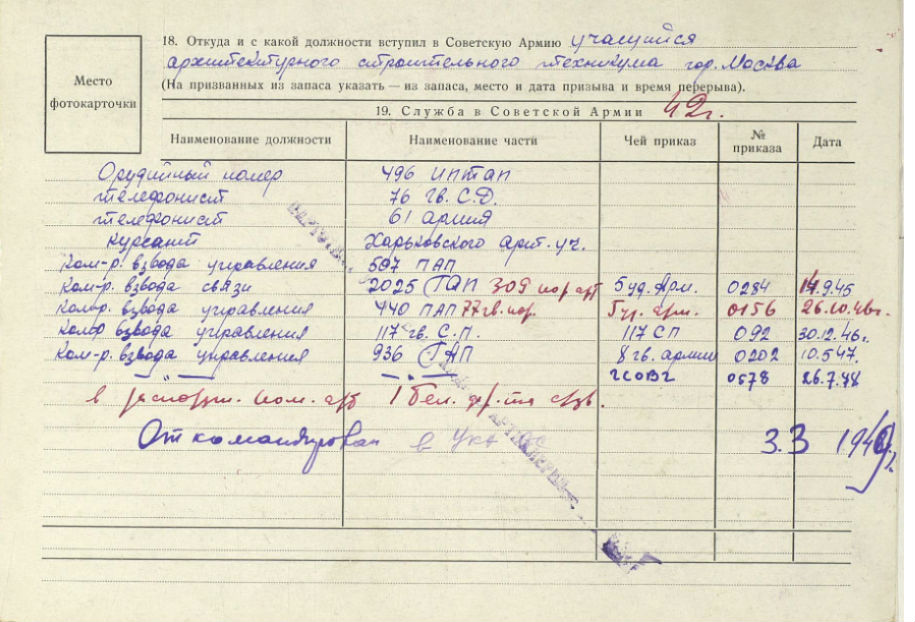 Место
фотокарточки
18. Откуда и с какой должности вступил в Советскую Армию учащийся
архитектурного строительного техникума гор. Москва
(На призванных из запаса указать — из запаса, место и дата призыва и время перерыва).
19. Служба в Советской Армии 42г.
Наименование должности Наименование части Чей приказ № приказа Дата
Орудийный номер 496 ИПТАП
телефонист 76 гв. С.Д.
телефонист 61 армия
Курсант Харьковского арт. уч.
Ком-р. взвода управления 597 ПАП
Ком-р. взвода связи 2025 ГАП 309 5 уд. Арм. 0284 9.45
Ком-р. взвода управления 440 ПАП 77 гв. 0156 26.10.46г.
Ком-р взвода управления 117 гв. С.П. 117 СП 092 30.12.46г.
Ком-р. взвода управления 936 ГАП 8 гв. армии 0202 10.5.47.
— „ — — „ — ГСОВГ 0578 26.7.48
в ком. арт 1 Бел.
Откомандирован в 3.3